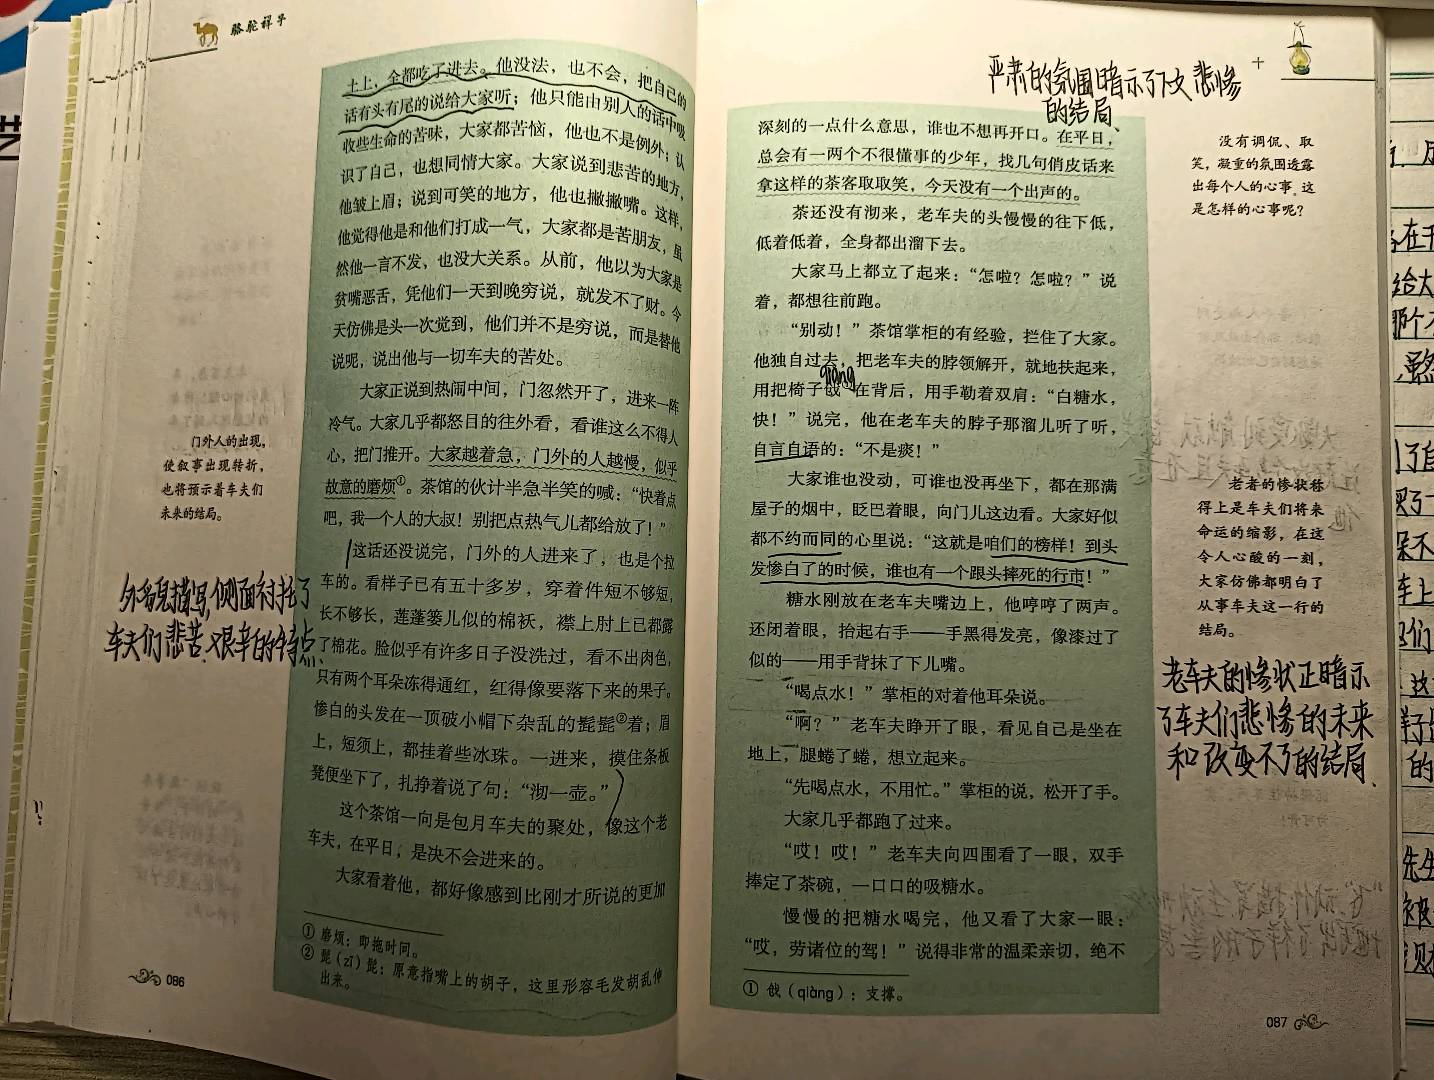 骆驼祥子
土上，全都吃了进去。他没法，也不会，把自己的
话有头有尾的说给大家听；他只能由别人的话中吸
收些生命的苦味，大家都苦恼，他也不是例外；认
识了自己，也想同情大家。大家说到悲苦的地方，
他皱上眉；说到可笑的地方，他也撇撇嘴。这样，
他觉得他是和他们打成一气，大家都是苦朋友，虽
然他一言不发，也没大关系。从前，他以为大家是
贫嘴恶舌，凭他们一天到晚穷说，就发不了财。今
天仿佛是头一次觉到，他们并不是穷说，而是替他
说呢，说出他与一切车夫的苦处。
大家正说到热闹中间，门忽然开了，进来一阵
冷气。大家几乎都怒目的往外看，看谁这么不得人
心，把门推开。大家越着急，门外的人越慢，似乎
故意的磨烦①。茶馆的伙计半急半笑的喊：“快着点
吧，我一个人的大叔！别把点热气儿都给放了！”
这话还没说完，门外的人进来了，也是个拉
车的。看样子已有五十多岁，穿着件短不够短，
长不够长，莲蓬篓儿似的棉袄，襟上肘上已都露
了棉花。脸似乎有许多日子没洗过，看不出肉色，
只有两个耳朵冻得通红，红得像要落下来的果子。
惨白的头发在一顶破小帽下杂乱的髭髭②着；眉
上，短须上，都挂着些冰珠。一进来，摸住条板
凳便坐下了，扎挣着说了句：“沏一壶。”
这个茶馆一向是包月车夫的聚处，像这个老
车夫，在平日，是决不会进来的。
大家看着他，都好像感到比刚才所说的更加
门外人的出现，
使叙事出现转折，
也将预示着车夫们
未来的结局。
外貌描写，侧面衬托了
车夫们悲苦、艰辛的特点、
① 磨烦：即拖时间。
② 髭（zī）髭：原意指嘴上的胡子，这里形容毛发胡乱伸
出来。
086
十
严肃的氛围暗示了下文悲惨
的结局、
深刻的一点什么意思，谁也不想再开口。在平日，
总会有一两个不很懂事的少年，找几句俏皮话来
拿这样的茶客取取笑，今天没有一个出声的。
茶还没有沏来，老车夫的头慢慢的往下低，
低着低着，全身都出溜下去。
大家马上都立了起来：“怎啦？怎啦？”说
着，都想往前跑。
“别动！”茶馆掌柜的有经验，拦住了大家。
他独自过去，把老车夫的脖领解开，就地扶起来，
qiàng
用把椅子戗①在背后，用手勒着双肩：“白糖水，
快！”说完，他在老车夫的脖子那溜儿听了听，
自言自语的：“不是痰！”
大家谁也没动，可谁也没再坐下，都在那满
屋子的烟中，眨巴着眼，向门儿这边看。大家好似
都不约而同的心里说：“这就是咱们的榜样！到头
发惨白了的时候，谁也有一个跟头摔死的行市！”
糖水刚放在老车夫嘴边上，他哼哼了两声。
还闭着眼，抬起右手——手黑得发亮，像漆过了
似的——用手背抹了下儿嘴。
“喝点水！”掌柜的对着他耳朵说。
“啊？”老车夫睁开了眼，看见自己是坐在
地上，腿蜷了蜷，想立起来。
“先喝点水，不用忙。”掌柜的说，松开了手。
大家几乎都跑了过来。
“哎！哎！”老车夫向四围看了一眼，双手
捧定了茶碗，一口口的吸糖水。
慢慢的把糖水喝完，他又看了大家一眼：
“哎，劳诸位的驾！”说得非常的温柔亲切，绝不
没有调侃、取
笑，凝重的氛围透露
出每个人的心事，这
是怎样的心事呢？
老者的惨状称
得上是车夫们将来
命运的缩影，在这
令人心酸的一刻，
大家仿佛都明白了
从事车夫这一行的
结局。
老车夫的惨状正暗示
了车夫们悲惨的未来
和改变不了的结局、
① 戗（qiàng）：支撑。
087